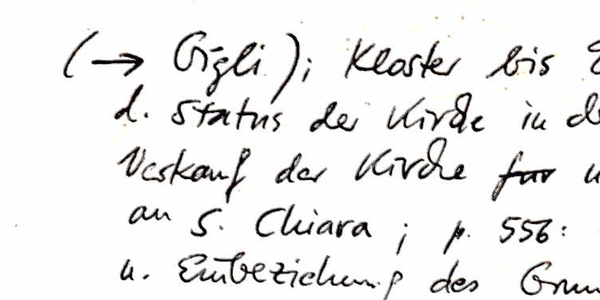 (→ Gigli); Kloster bis
d. Status der Kirche in
Verkauf der Kirche für
an S. Chiara; p. 556:
u. Einbeziehung des